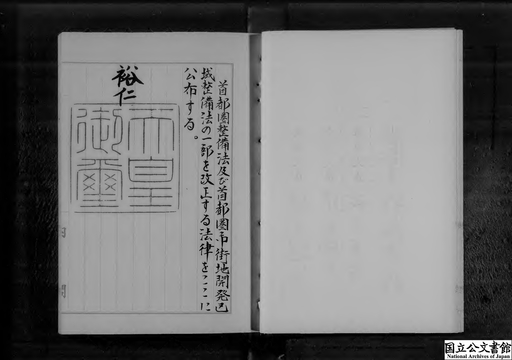 首都圏整備法及び首都圏市街地開発区
域整備法の一部を改正する法律をここに
公布する。
裕仁
天皇
御璽
国立公文書館
National Archives of Japan